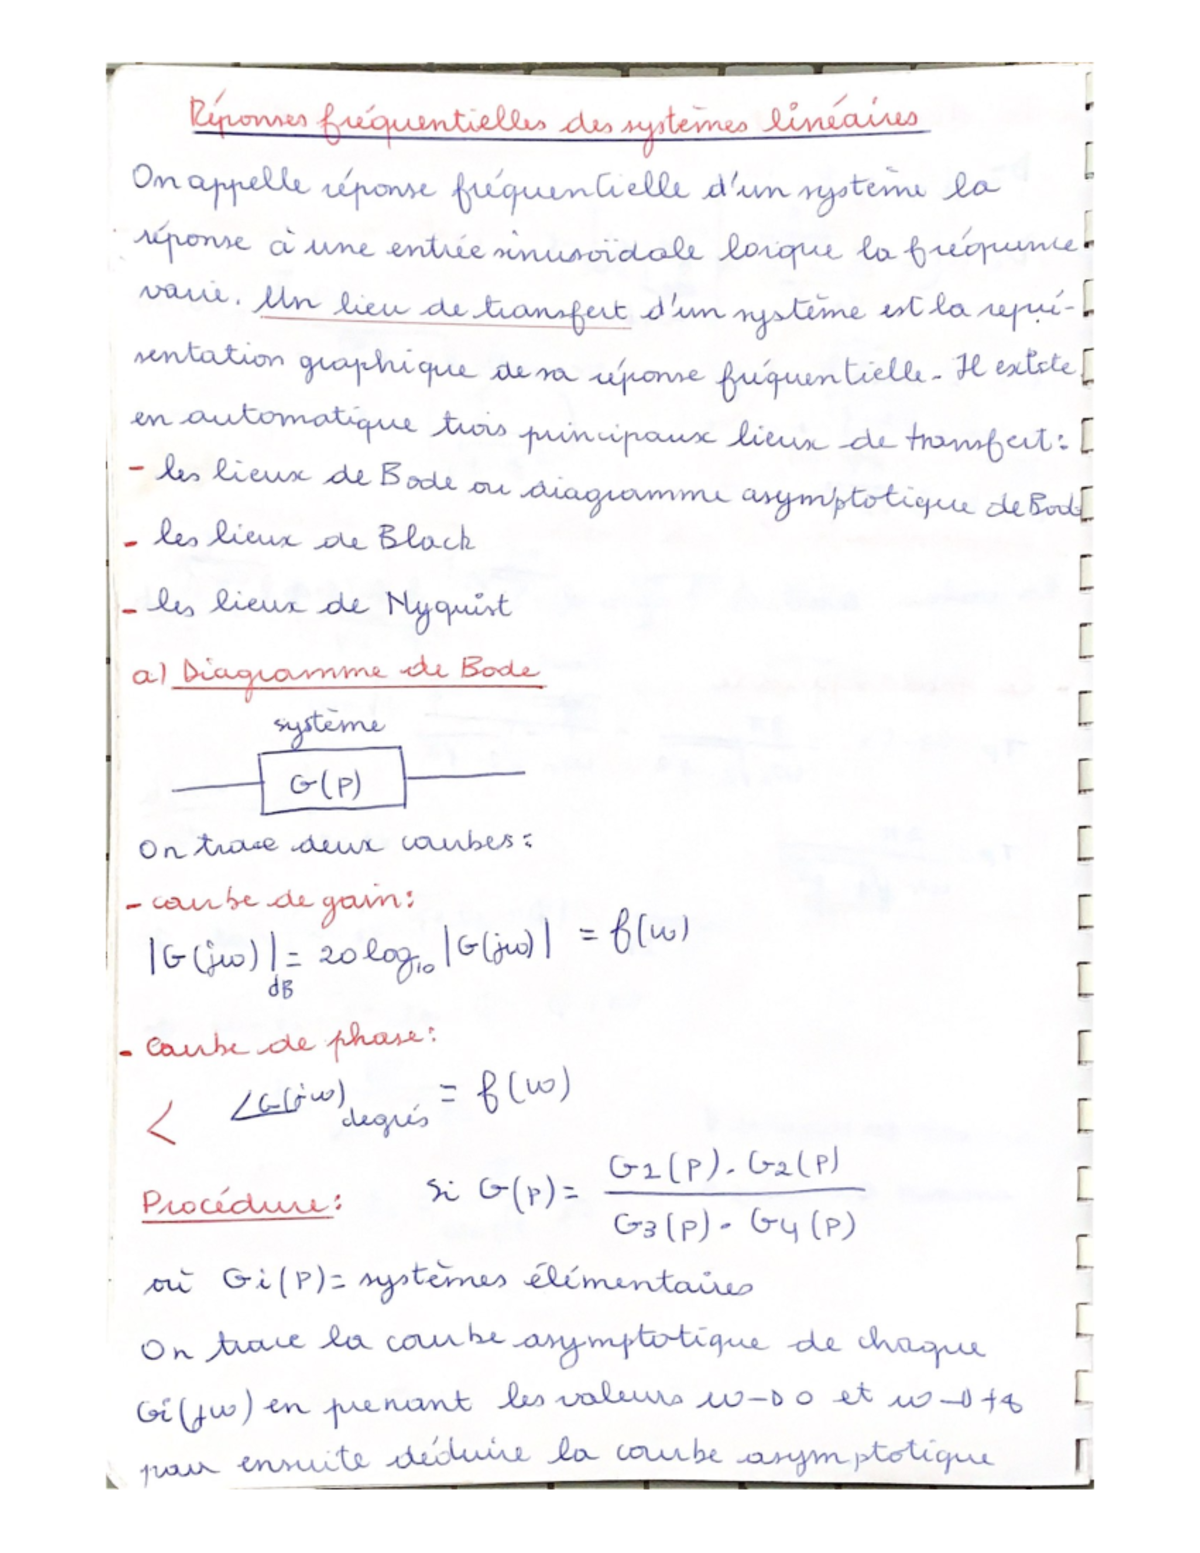 Réponses fréquentielles des systèmes linéaires
On appelle réponse fréquentielle d'un système la
réponse à une entrée sinusoïdale lorsque la fréquence
varie. Un lieu de transfert d'un système est la repré-
sentation graphique de sa réponse fréquentielle. Il existe
en automatique trois principaux lieux de transfert :
- les lieux de Bode ou diagramme asymptotique de Bode
- les lieux de Black
- les lieux de Nyquist
a) Diagramme de Bode
système
G(p)
On trace deux courbes :
- courbe de gain :
|G(jω)|dB = 20 log10 |G(jω)| = f(ω)
- Courbe de phase :
< ∠G(jω) degrés = f(ω)
Procédure : Si G(p) = G1(p) . G2(p) / G3(p) . G4(p)
où Gi(p) = systèmes élémentaires
On trace la courbe asymptotique de chaque
Gi(jω) en prenant les valeurs ω→0 et ω→+∞
pour ensuite déduire la courbe asymptotique